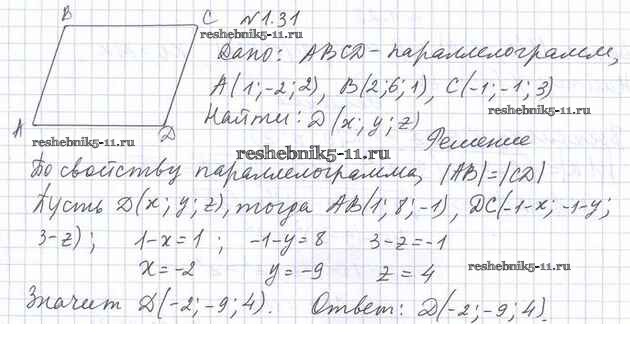 B C №1.31
reshebnik5-11.ru
Дано: ABCD - параллелограмм,
A(1;-2;2), B(2;6;1), C(-1;-1;3)
reshebnik5-11.ru
Найти: D(x; y; z)
A D
reshebnik5-11.ru
Решение
reshebnik5-11.ru
По свойству параллелограмма, |AB|=|CD|
Пусть D(x; y; z), тогда AB(1; 8; -1), DC(-1-x; -1-y;
3-z); 1-x=1; -1-y=8 3-z=-1
x=-2 y=-9 z=4
reshebnik5-11.ru
Значит D(-2;-9;4). Ответ: D(-2;-9;4).